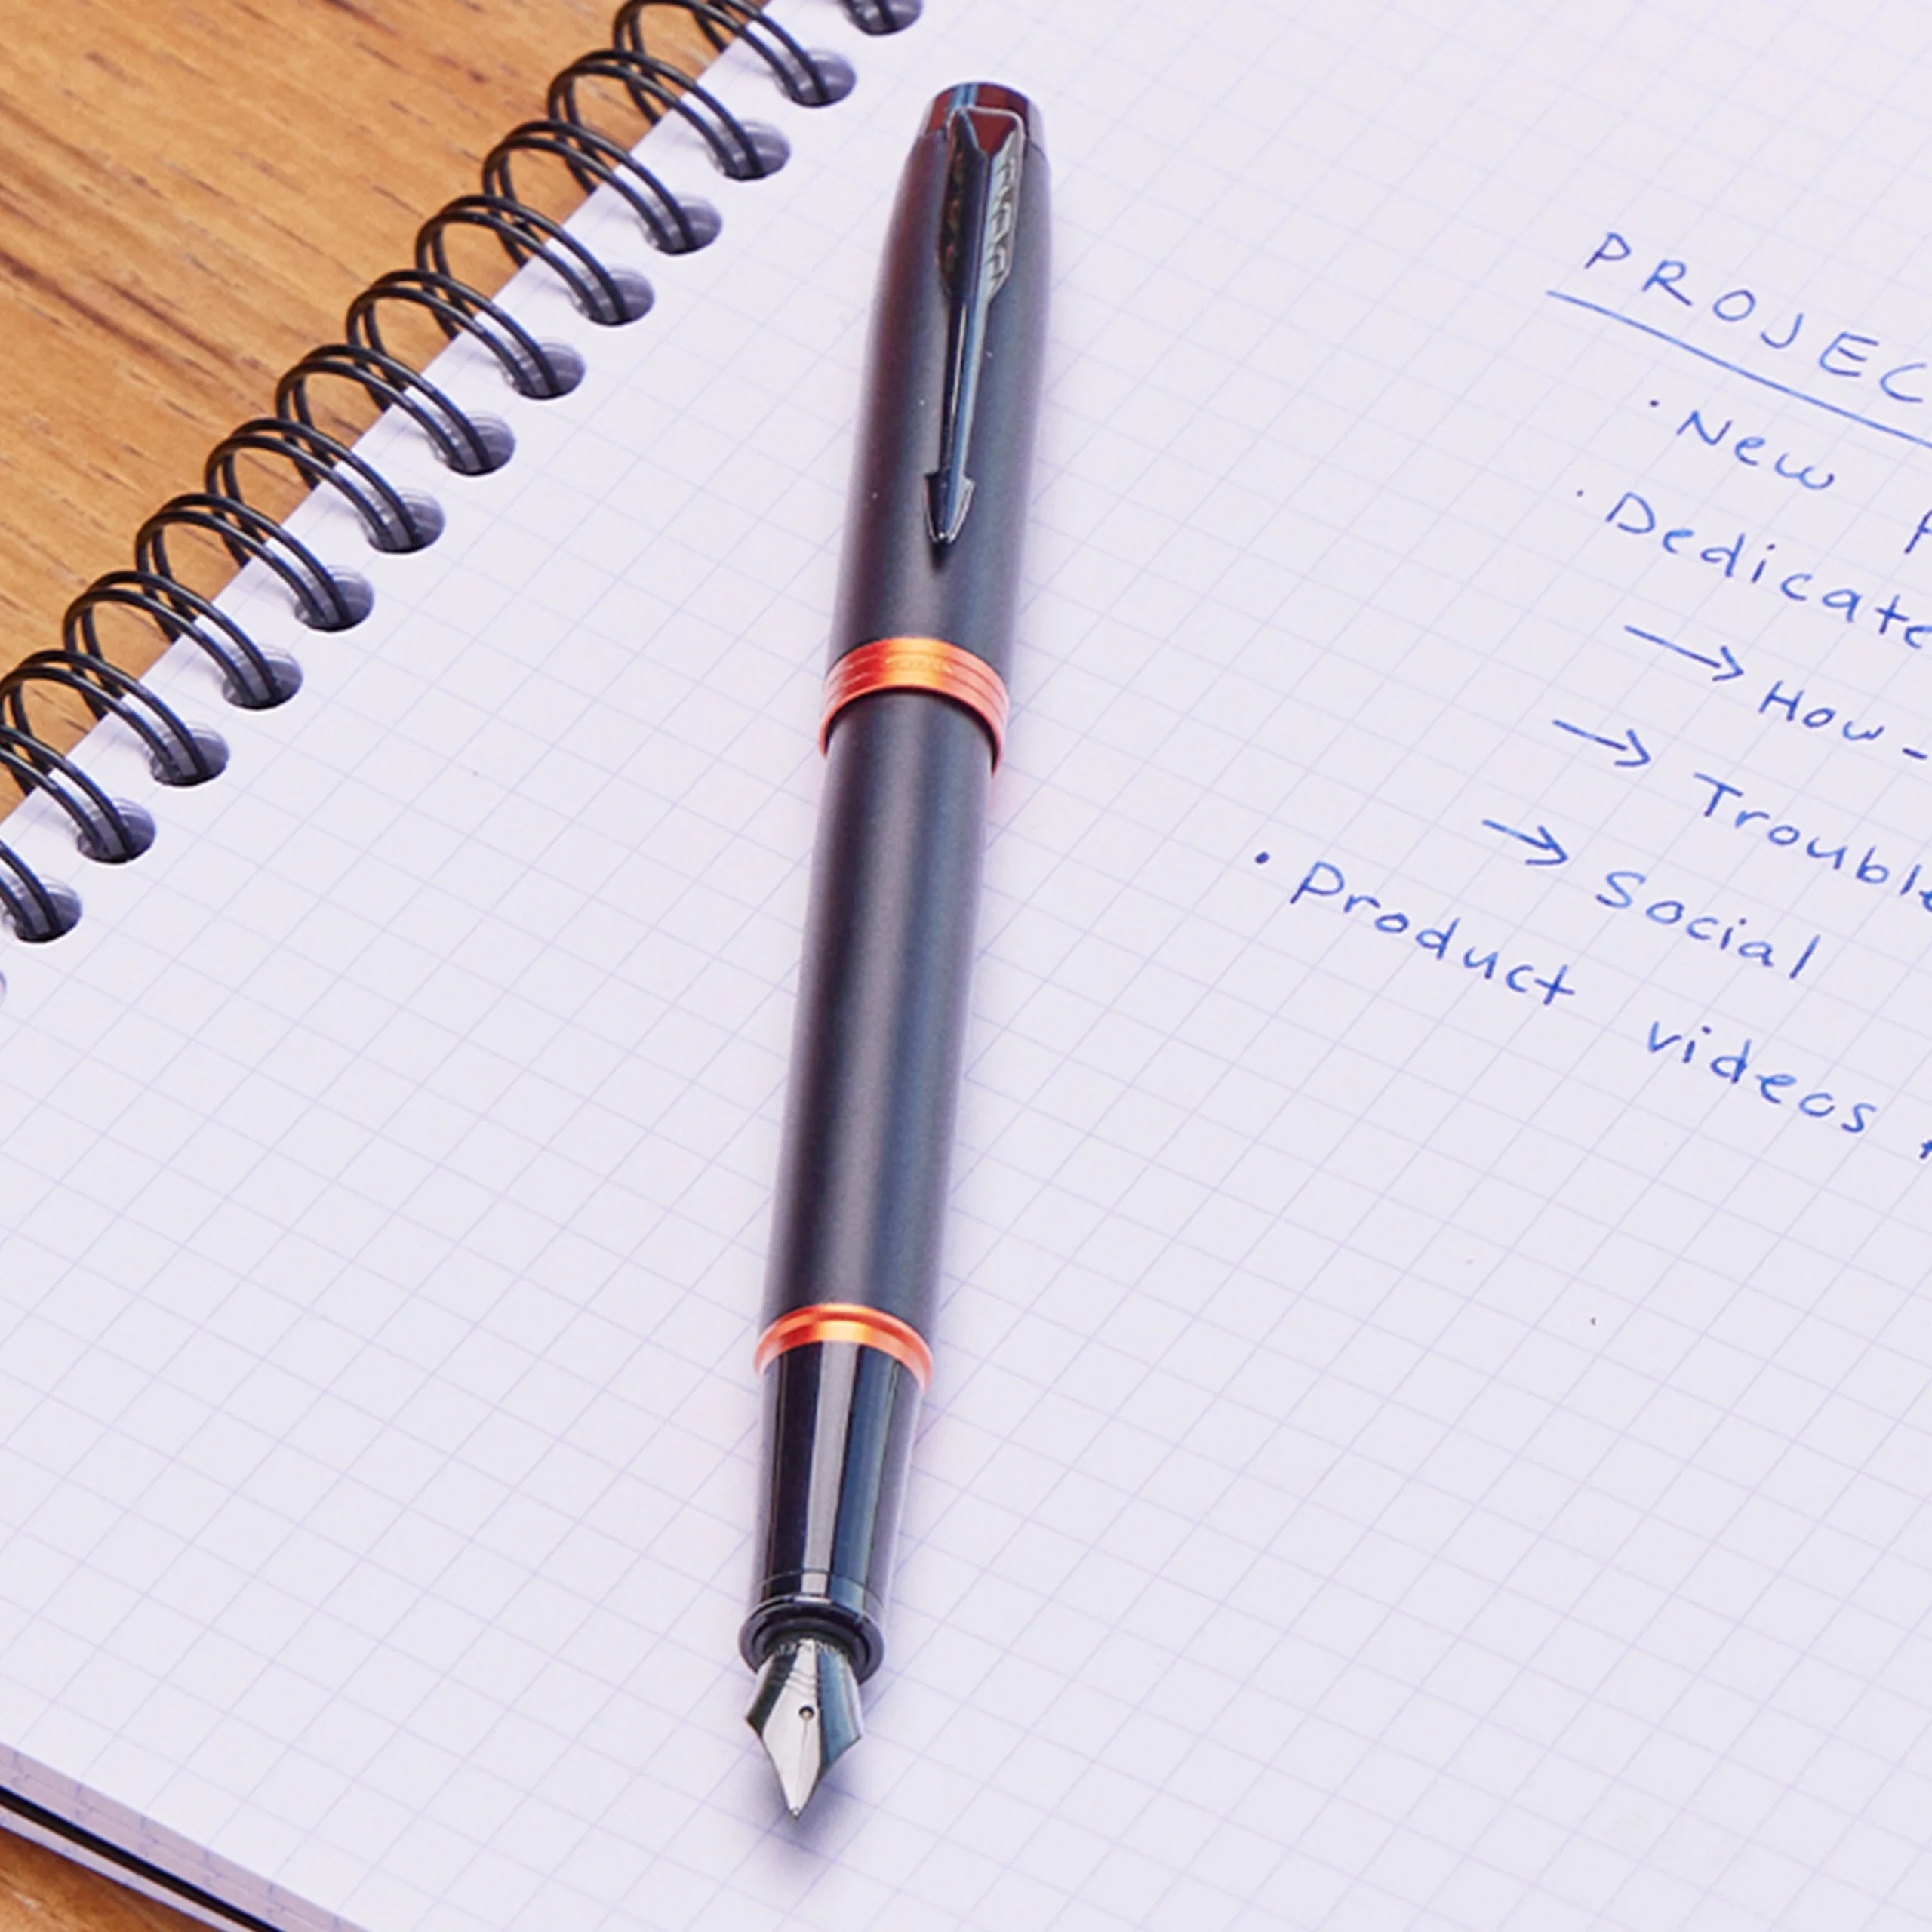 PROJEC
· New
· Dedicate
→ How-
→ Trouble
→ Social
· Product videos